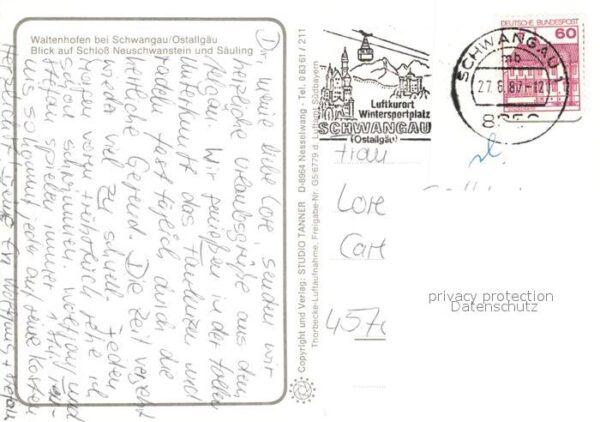 Waltenhofen bei Schwangau/Ostallgäu
Blick auf Schloß Neuschwanstein und Säuling
Dir, meine liebe Lore, senden wir
herzliche Urlaubsgrüße aus dem
Allgäu. Wir genießen in der tollen
Unterkunft das Faulenzen und
radeln fast täglich durch die
herrliche Gegend. Die Zeit vergeht
wieder viel zu schnell. Jeden
Morgen vorm Frühstück gehe ich
schwimmen. Wolfgang und
Stefan spielen immer
so kommt jeder auf seine Kosten
Herzlichst Eure Wolfgang + Stefan
Copyright und Verlag: STUDIO TANNER D-8964 Nesselwang - Tel. 0 83 61 / 211
Thorbecke-Luftaufnahme, Freigabe-Nr. G5/6779 d. Luftamt Südbayern
Luftkurort
Wintersportplatz
SCHWANGAU
(Ostallgäu)
SCHWANGAU 1
mb
27.6.87-12
DEUTSCHE BUNDESPOST
60
Frau
Lore
Cart
457
privacy protection
Datenschutz